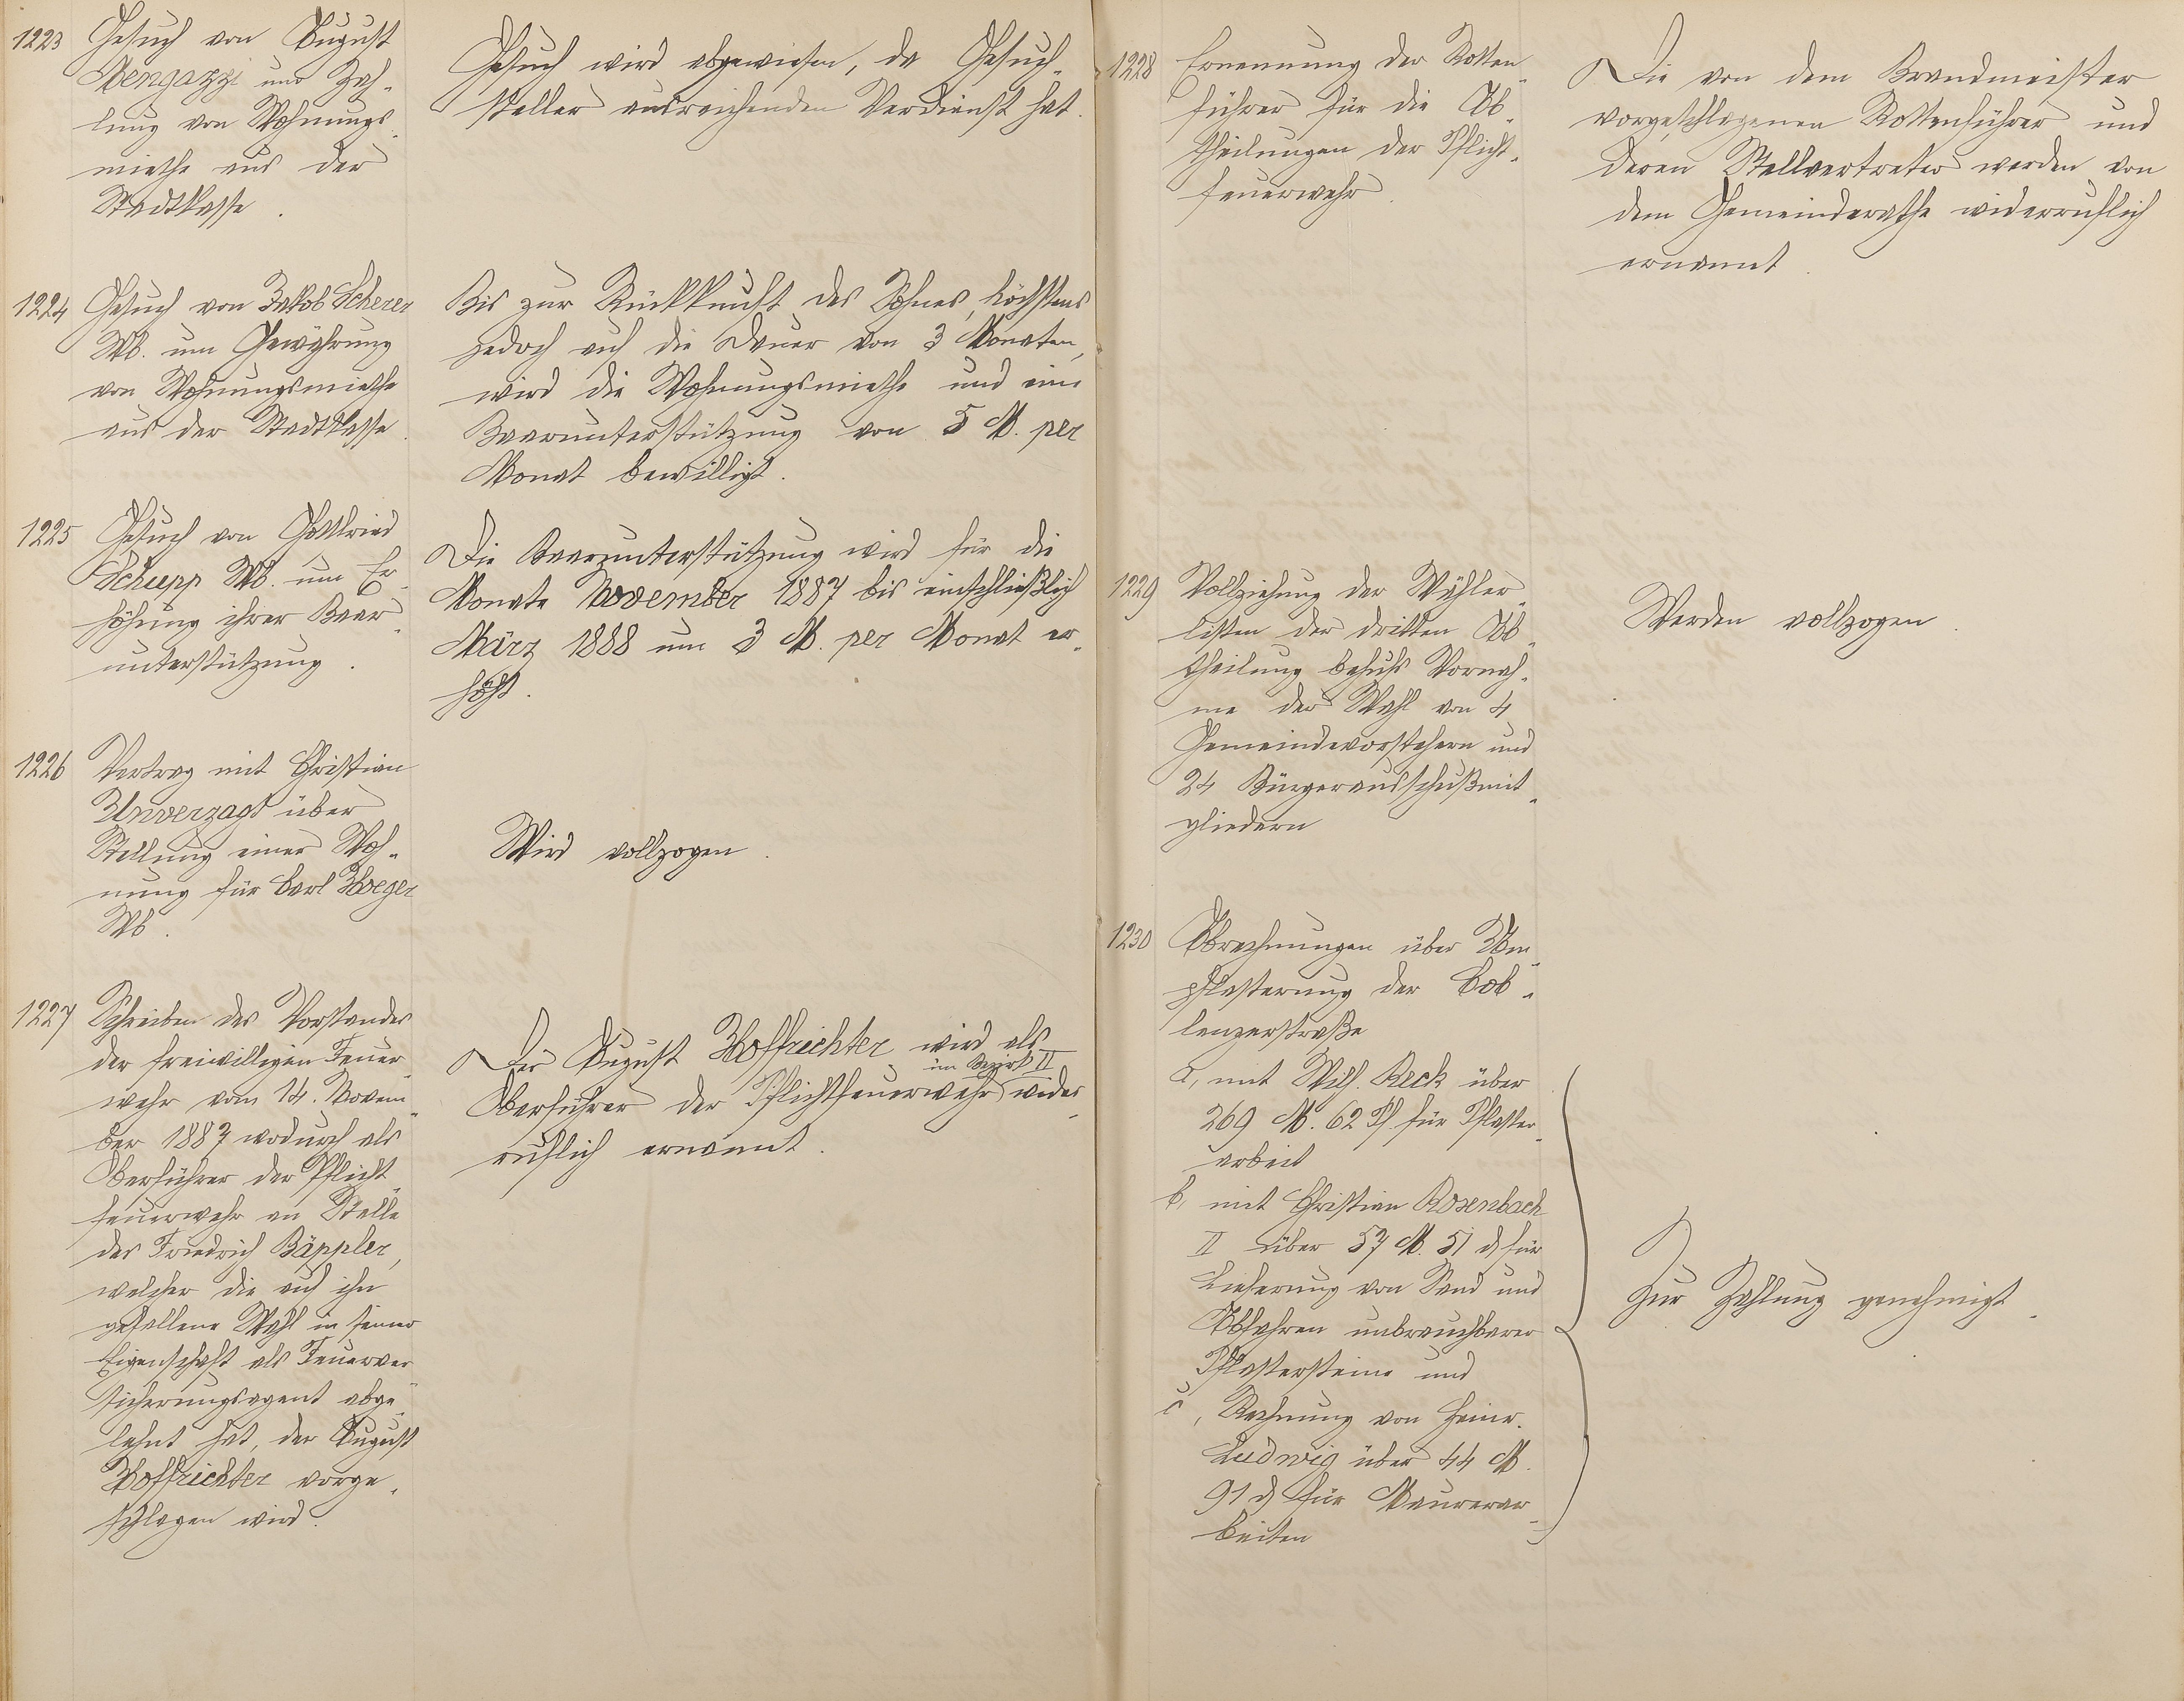 1223
Gesuch von August
Mengazzi um Zah-
lung von Wohnungs-
miethe aus der
Stadtkasse.
Gesuch wird abgewiesen, da Gesuch-
steller ausreichenden Verdienst hat.
1224
Gesuch von Jakob Scherer
Wb. um Gewährung
von Wohnungsmiethe
aus der Stadtkasse.
Bis zur Rückkunft des Sohnes, höchstens
jedoch auf die Dauer von 3 Monaten,
wird die Wohnungsmiethe und eine
Baarunterstützung von 5 M. per
Monat bewilligt.
1225
Gesuch von Gottfried
Schupp Wb. um Er-
höhung ihrer Baar-
unterstützung.
Die Baarunterstützung wird für die
Monate November 1887 bis einschließlich
März 1888 um 3 M. per Monat er-
höht.
1226
Vertrag mit Christian
Unverzagt über
Stellung einer Woh-
nung für Carl Hoeger
Wb.
Wird vollzogen.
1227
Schreiben des Vorstandes
der freiwilligen Feuer-
wehr vom 14. Novem-
ber 1887 wodurch als
Oberführer der Pflicht-
feuerwehr an Stelle
des Friedrich Bäppler,
welcher die auf ihn
gefallene Wahl in seiner
Eigenschaft als Feuerver-
sicherungsagent abge-
lehnt hat, der August
Hoffrichter vorge-
schlagen wird.
Der August Hoffrichter wird als
im Bezirk II
Oberführer der Pflichtfeuerwehr wider-
ruflich ernannt.
1228
Ernennung der Rotten-
führer für die Ab-
theilungen der Pflicht-
feuerwehr.
Die von dem Brandmeister
vorgeschlagenen Rottenführer und
deren Stellvertreter werden von
dem Gemeinderathe widerruflich
ernannt.
1229
Vollziehung der Wähler-
listen der dritten Ab-
theilung behufs Vornah-
me der Wahl von 4
Gemeindevorstehern und
24 Bürgerausschußmit-
gliedern
Werden vollzogen.
1230
Abrechnungen über Um-
pflasterung der Cob-
lenzerstraße
a, mit Wilh. Reck über
269 M. 62 Pf. für Pflaster-
arbeit
b, mit Christian Rosenbach
II über 57 M. 51 ₰ für
Lieferung von Sand und
Abfahren unbrauchbarer
Pflastersteine und
c, Rechnung von Heinr.
Ludwig über 44 M.
91 ₰ für Maurerar-
beiten
Zur Zahlung genehmigt.